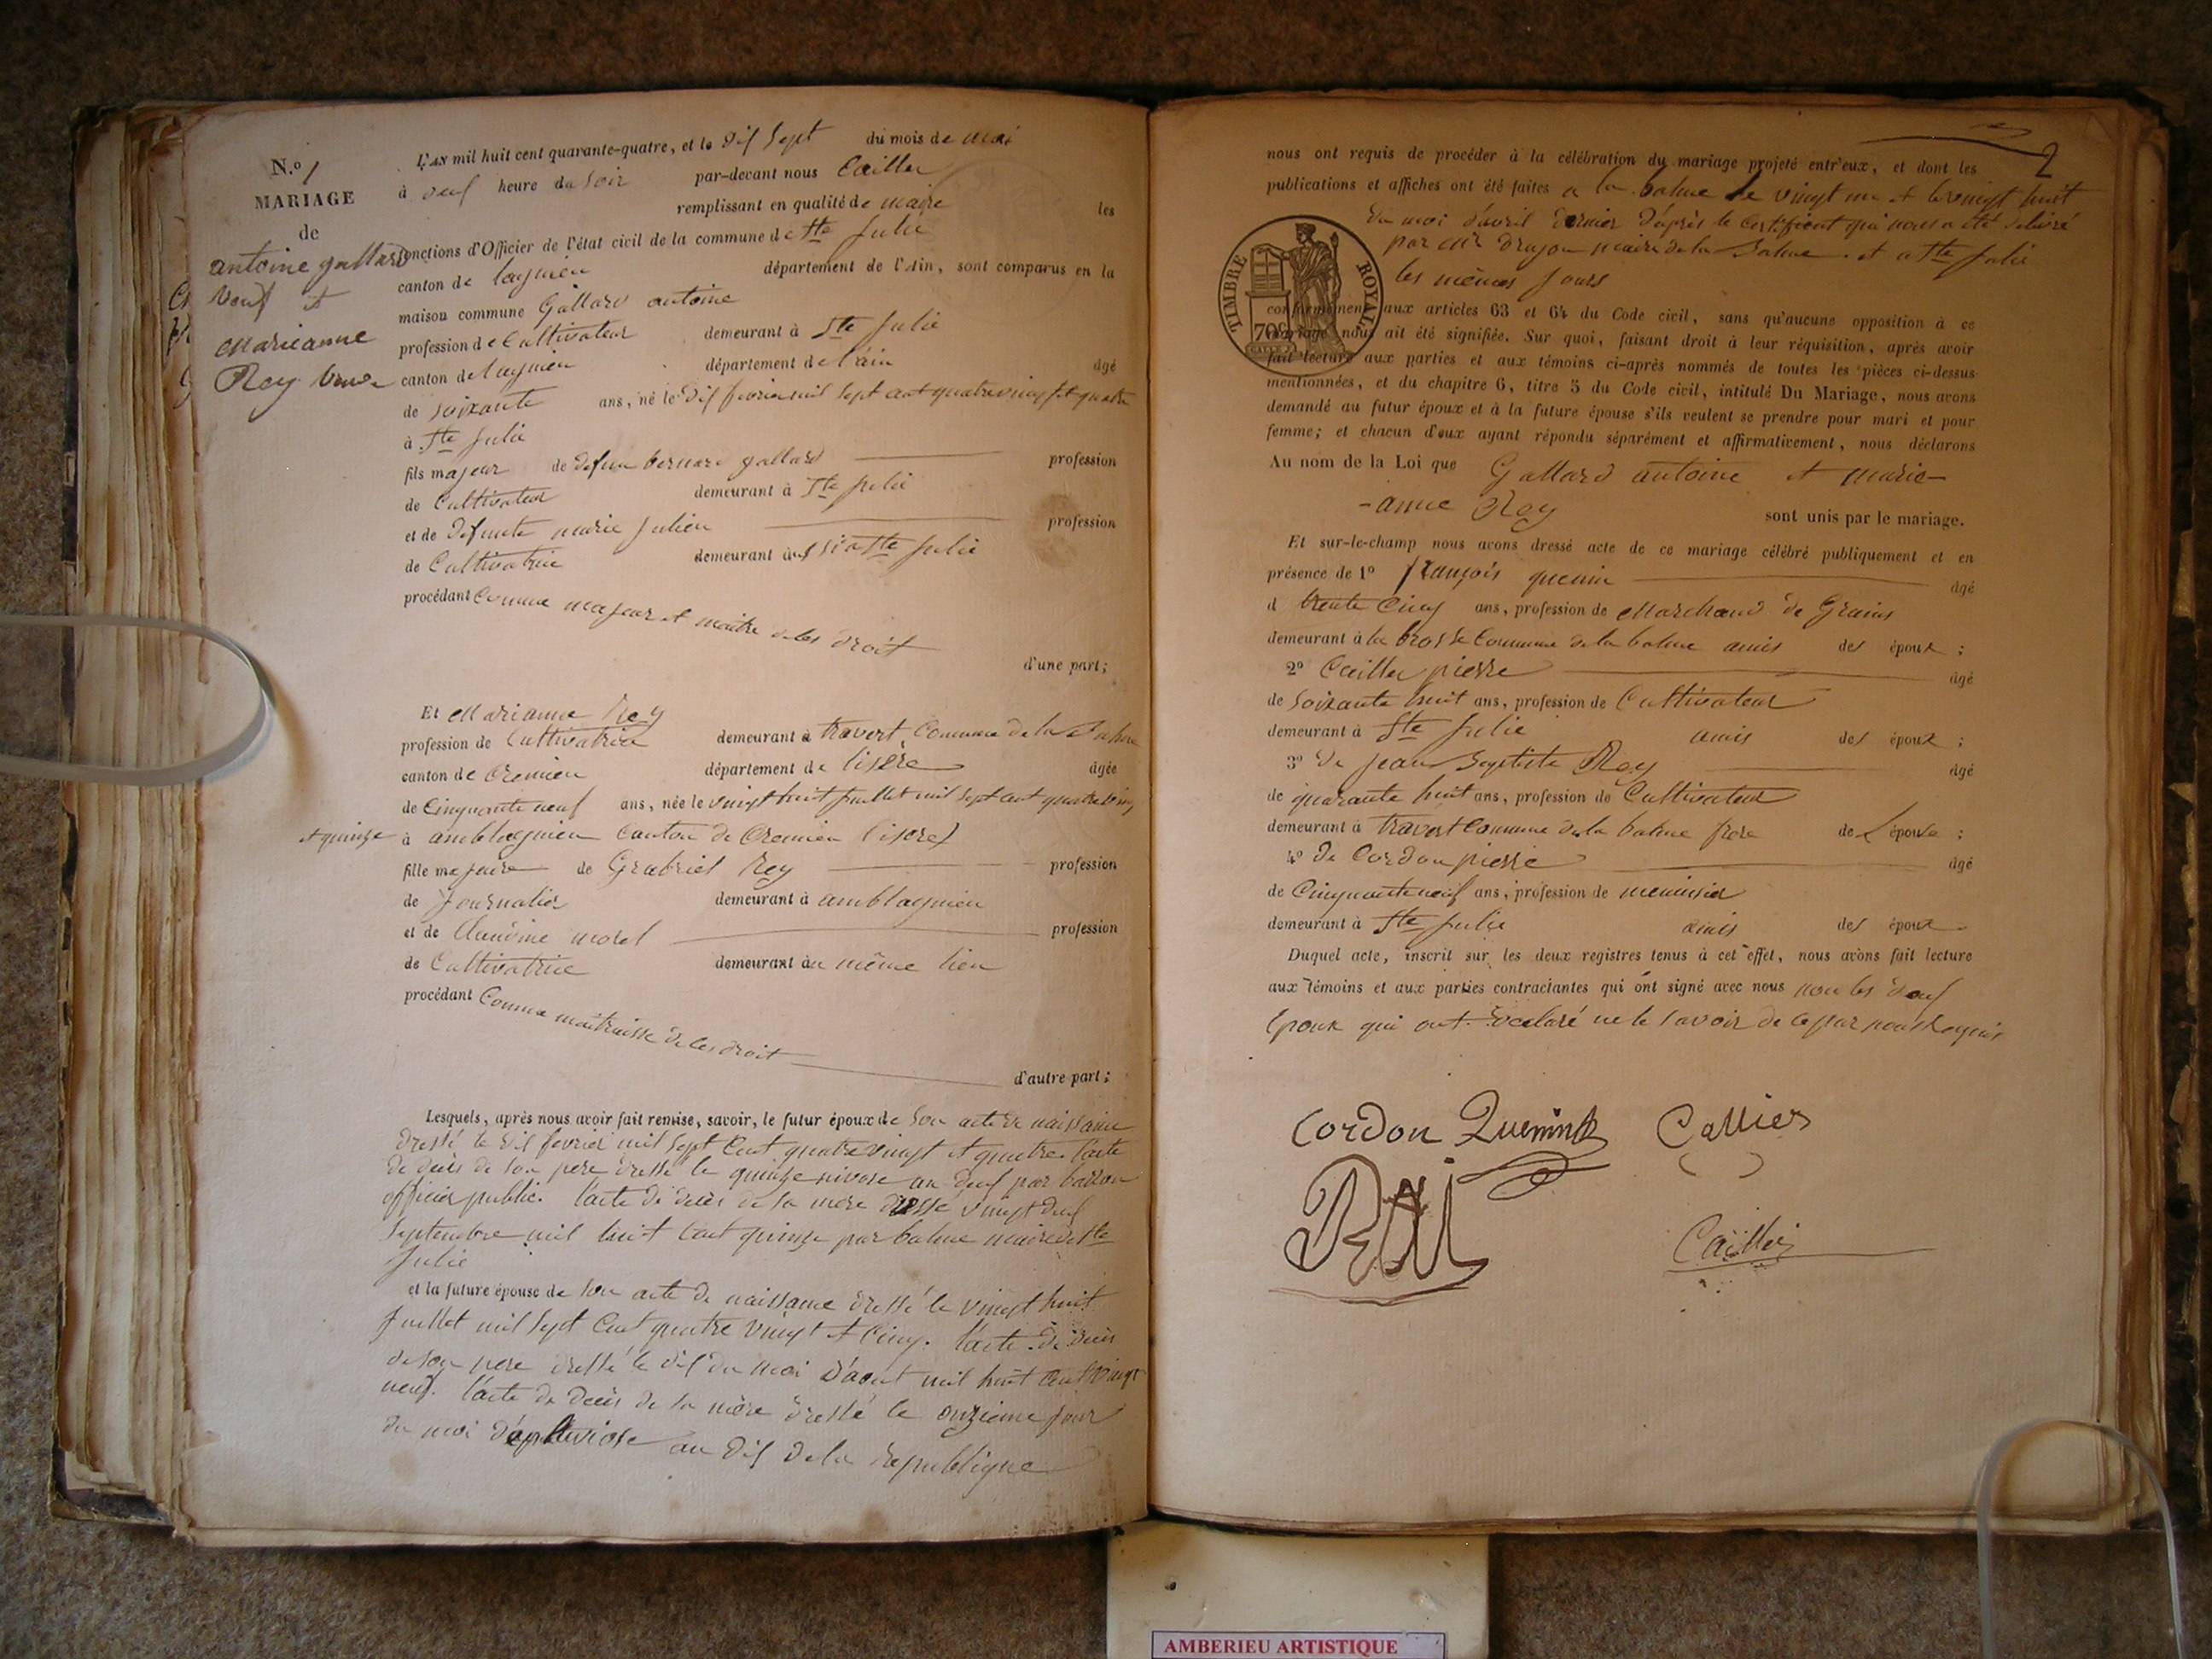 N.º 1
MARIAGE
de
antoine gallard
veuf et
Marieanne
Rey veuve
L'AN mil huit cent quarante-quatre, et le dix sept du mois de mai
à deux heure du soir par-devant nous Cailler
remplissant en qualité de maire les
fonctions d'Officier de l'état civil de la commune de Ste Julie
canton de lagnieu département de l'Ain, sont comparus en la
maison commune Gallard antoine
profession de Cultivateur demeurant à Ste Julie
canton de lagnieu département de l'ain âgé
de soixante ans, né le dix fevrier mil sept cent quatre vingt et quatre
à Ste Julie
fils majeur de defun bernard gallard profession
de Cultivateur demeurant à Ste Julie
et de defunte marie Julien profession
de Cultivatrice demeurant à Ste Julie
procédant Comme majeur et maitre de ses droit
d'une part;
Et Marianne Rey
profession de Cultivatrice demeurant à travert Commune de la Balme
canton de Cremieu département de lisère âgée
de Cinquante neuf ans, née le vingt huit juillet mil sept cent quatre ving
et quinze à amblagnieu Canton de Cremieu (isere)
fille majeure de Grabriel Rey profession
de Journalier demeurant à amblagnieu
et de Claudine morel profession
de Cultivatrice demeurant au même lieu
procédant Comme maitraisse de ses droit
d'autre part;
Lesquels, après nous avoir fait remise, savoir, le futur époux de son acte de naissance
dressé le dix fevrier mil sept Cent quatre vingt et quatre. l'acte
de décès de son pere dressé le quinze nivose an deux par
officier public. l'acte de décès de sa mere dressé vingt deux
Septembre mil huit Cent quinze par balme maire de Ste
Julie
et la future épouse de son acte de naissance dressé le vingt huit
Juillet mil sept Cent quatre vingt et Cinq. l'acte de décès
de son pere dressé le dix du moi d'aout mil huit Cent vingt
neuf. l'acte de décès de sa mère dressé le onzieme jour
du moi de pluviose an dix de la republique
2
nous ont requis de procéder à la célébration du mariage projeté entr'eux, et dont les
publications et affiches ont été faites a la balme le vingt un et le vingt huit
du moi d'avril dernier d'après le Certificat qui nous a été delivré
par Mr maire de la Balme. et a Ste Julie
les mêmes jours
TIMBRE ROYAL
conformément aux articles 63 et 64 du Code civil, sans qu'aucune opposition à ce
mariage nous ait été signifiée. Sur quoi, faisant droit à leur réquisition, après avoir
fait lecture aux parties et aux témoins ci-après nommés de toutes les pièces ci-dessus
mentionnées, et du chapitre 6, titre 5 du Code civil, intitulé Du Mariage, nous avons
demandé au futur époux et à la future épouse s'ils veulent se prendre pour mari et pour
femme; et chacun d'eux ayant répondu séparément et affirmativement, nous déclarons
Au nom de la Loi que Gallard antoine et marie-
-anne Rey sont unis par le mariage.
Et sur-le-champ nous avons dressé acte de ce mariage célébré publiquement et en
présence de 1º françois quenin âgé
d trente Cinq ans, profession de Marchand de Grains
demeurant à la brosse Commune de la balme amis des époux;
2º Cailler pierre âgé
de soixante huit ans, profession de Cultivateur
demeurant à Ste Julie amis des époux;
3º de jean Baptiste Rey âgé
de quarante huit ans, profession de Cultivateur
demeurant à travert Commune de la balme frere de l'épouse;
4º de Cordon pierre âgé
de Cinquante neuf ans, profession de menuisier
demeurant à Ste Julie amis des époux
Duquel acte, inscrit sur les deux registres tenus à cet effet, nous avons fait lecture
aux témoins et aux parties contractantes qui ont signé avec nous non les deux
Epoux qui ont declaré ne le savoir de ce par nous Requis
Cordon Quenin Callier
Cailler
AMBERIEU ARTISTIQUE